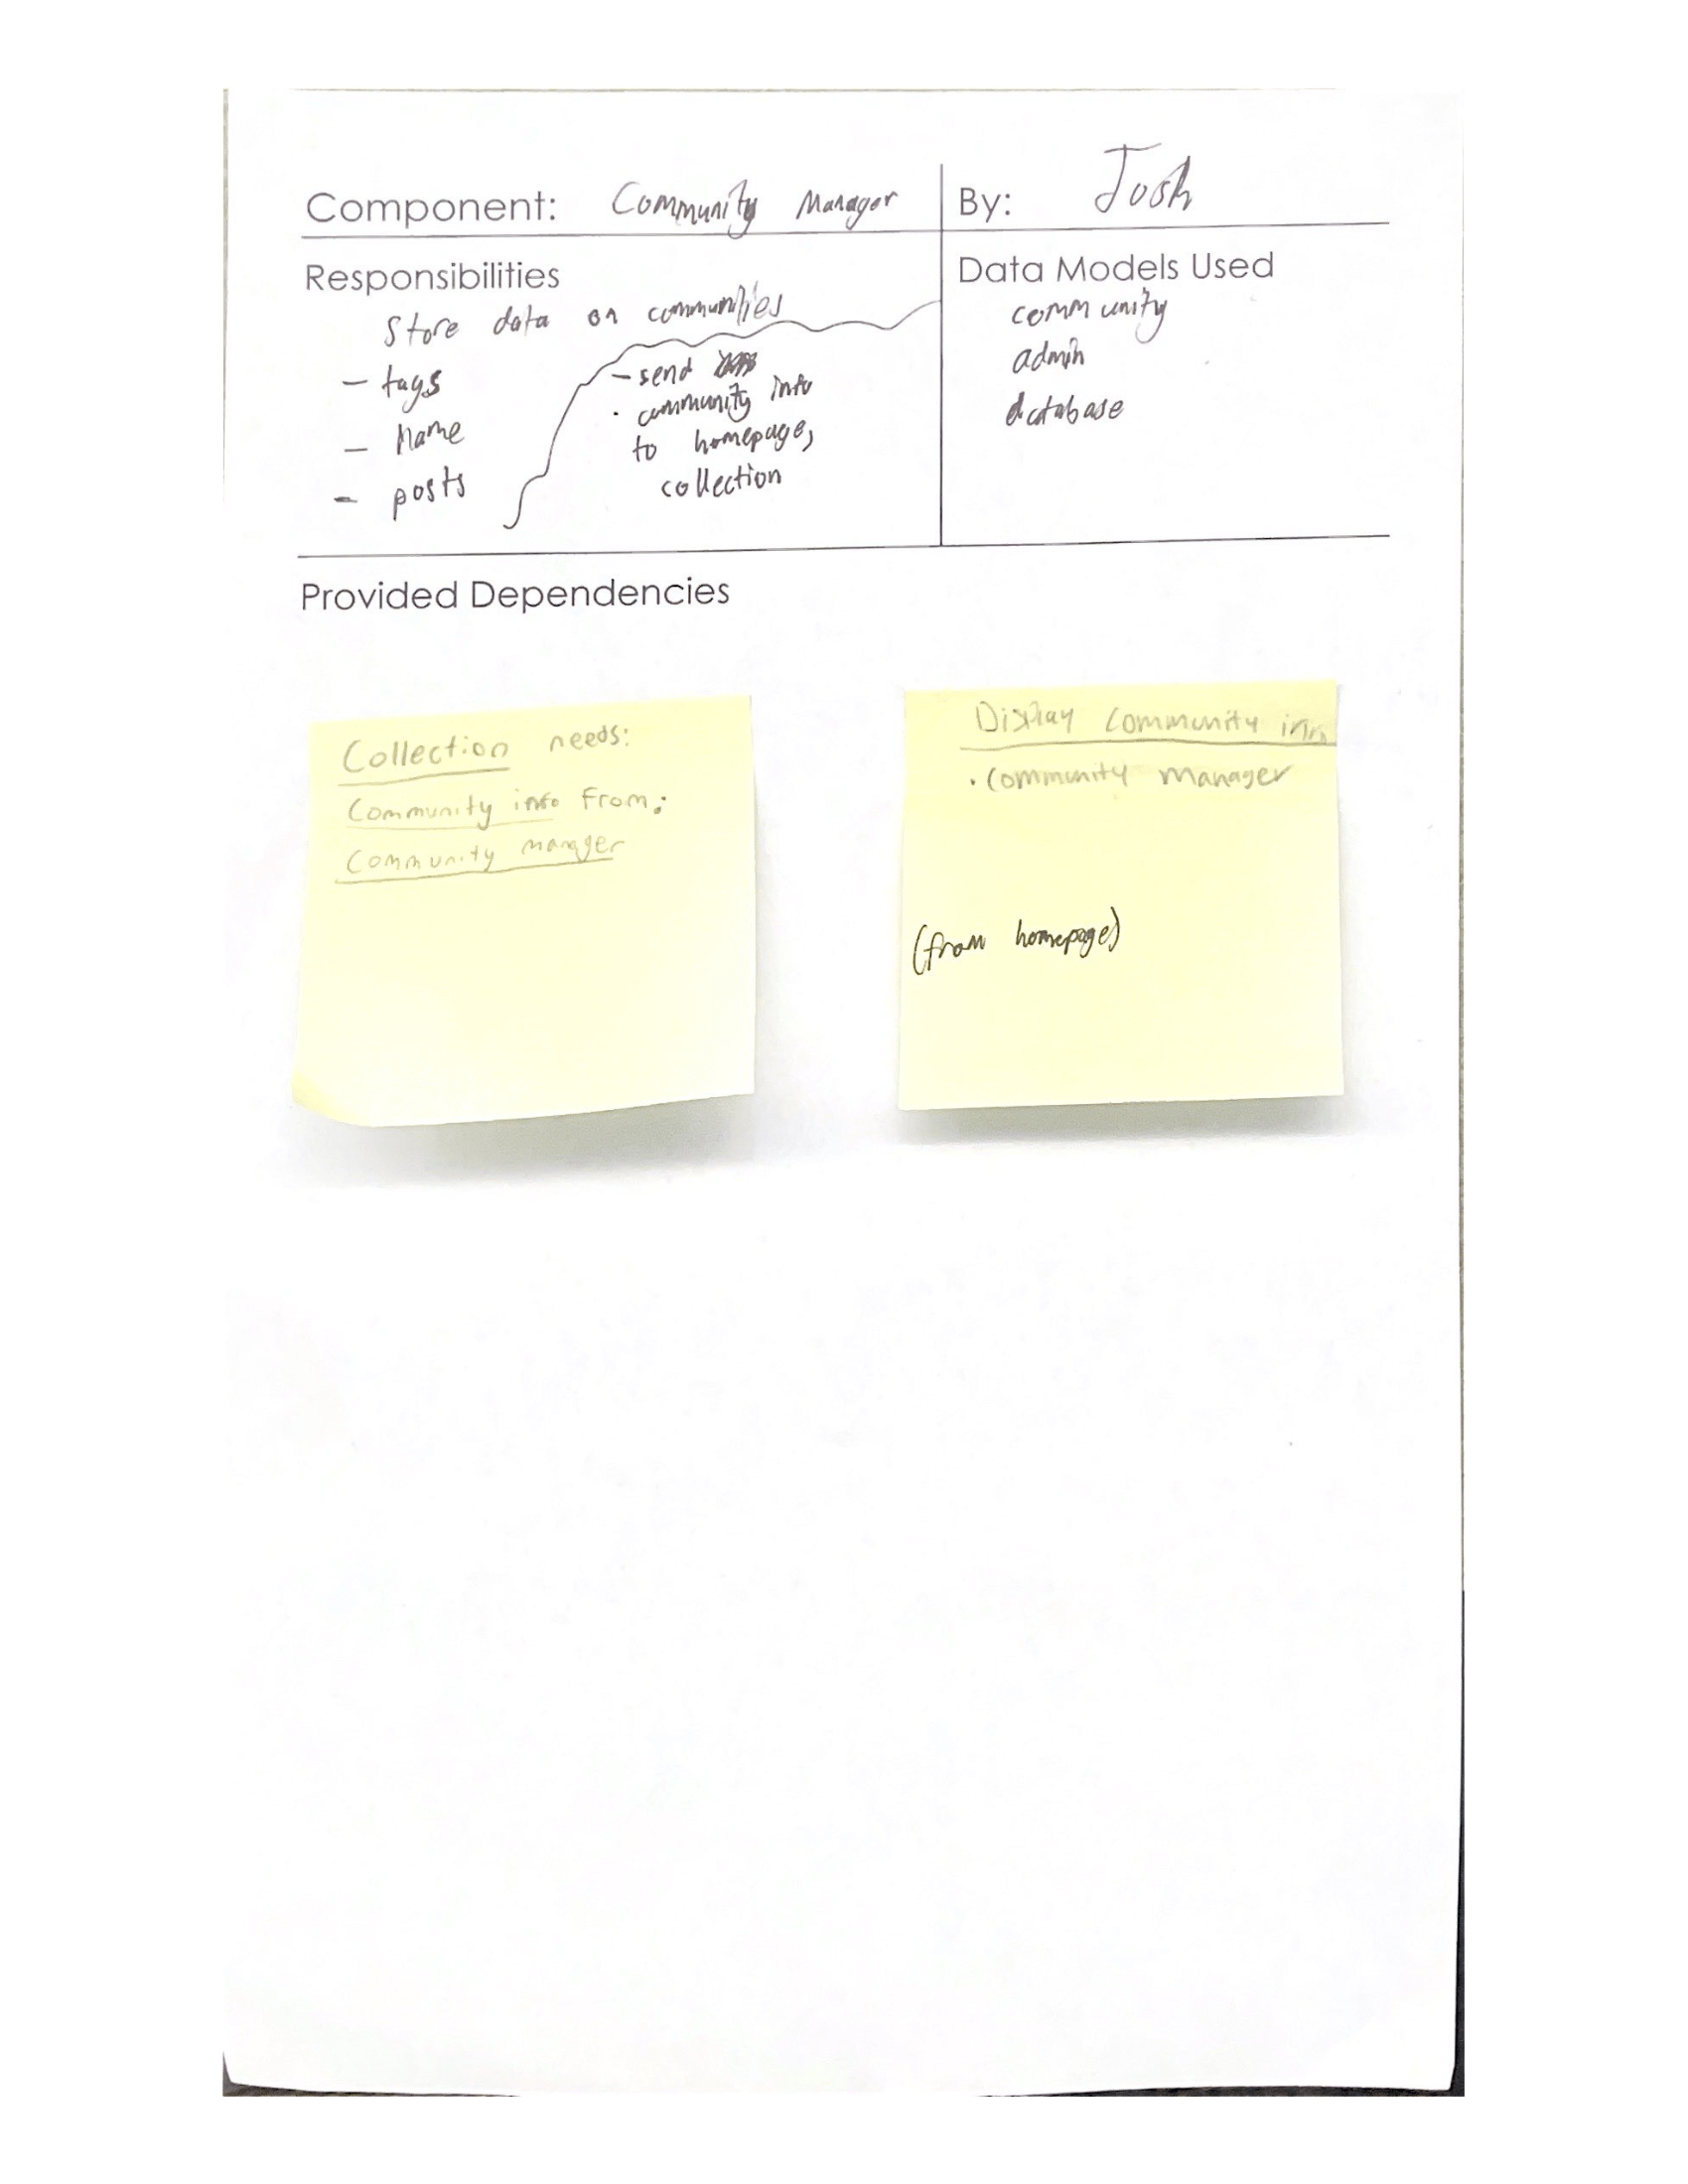 Component: Community Manager
By: Josh
Responsibilities
Store data on communities
- tags
- Name
- posts
- send
· community info
to homepage,
collection
Data Models Used
community
admin
database
Provided Dependencies
Collection needs:
Community info From:
Community manager
Display Community
· Community Manager
(from homepage)